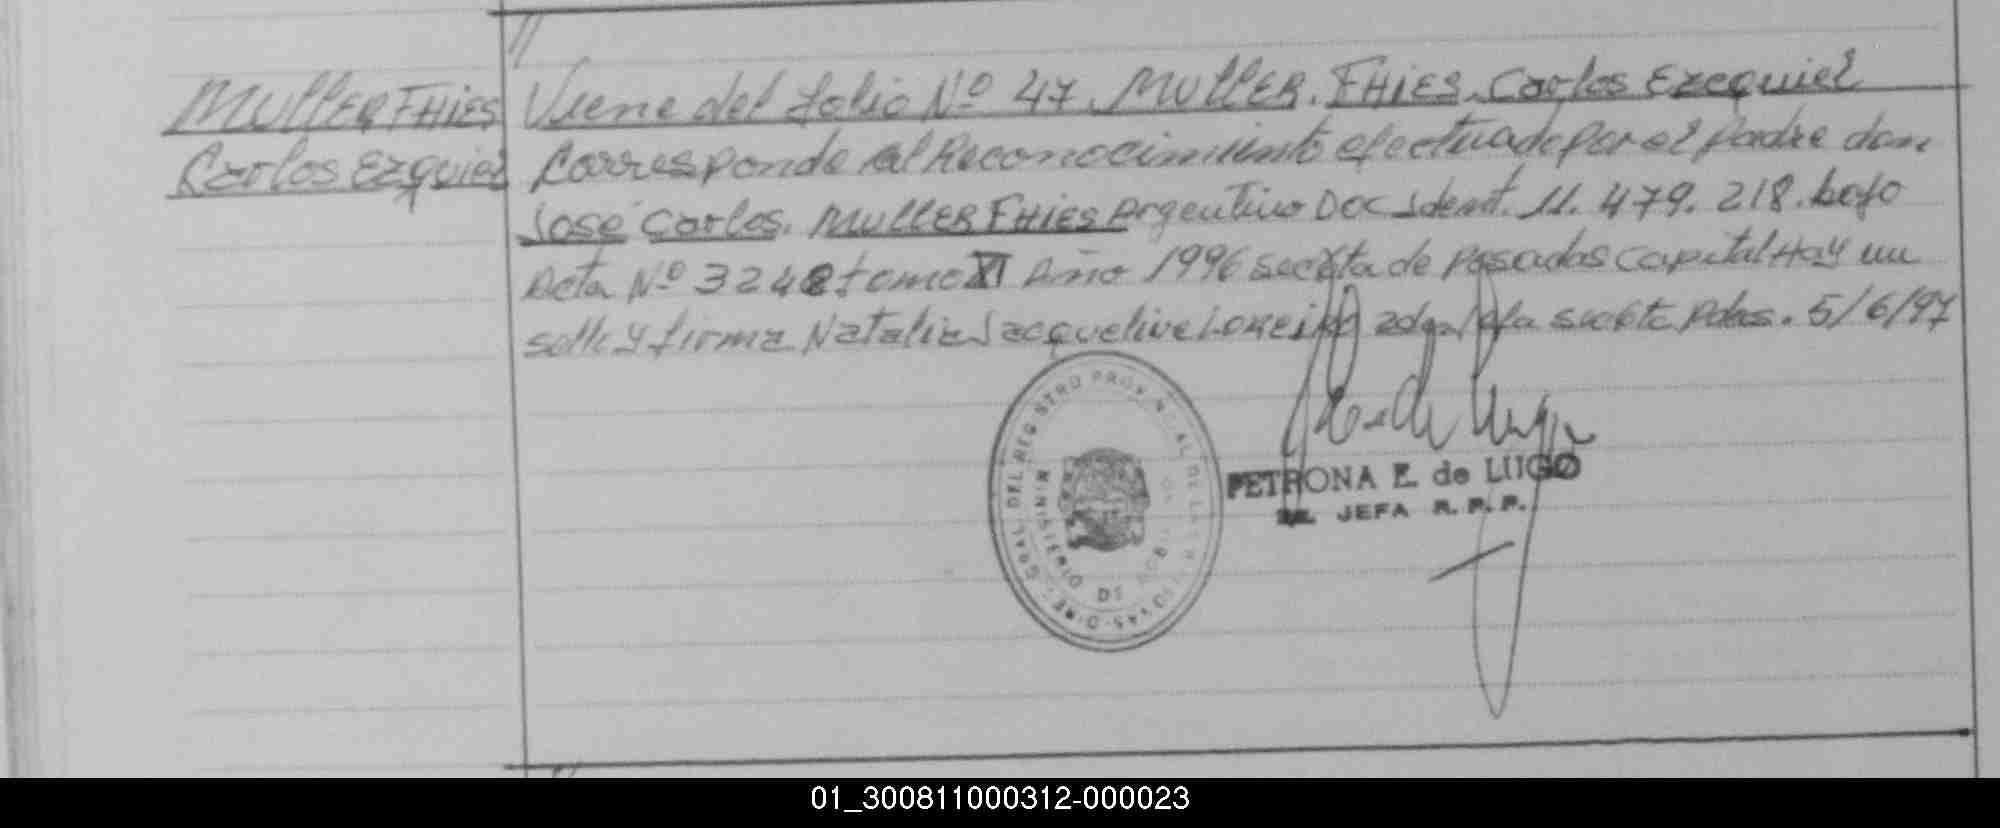 MULLER FHIES
Carlos Ezquiel
Viene del folio Nº 47. MULLER. FHIES. Carlos Ezequiel
Corresponde al Reconocimiento efectuado por el padre don
José Carlos. MULLER FHIES Argentino Doc Ident. 11.479.218. bajo
Acta Nº 3242 tomo XI Año 1996 de Posadas Capital Hay un
sello y firma Natalia Jacqueline Pdas. 5/6/97
PETRONA E. de LUGO
JEFA R. P. P.
GRAL DEL REGISTRO PROVINCIAL DE LAS
MINISTERIO DE GOB
01_300811000312-000023